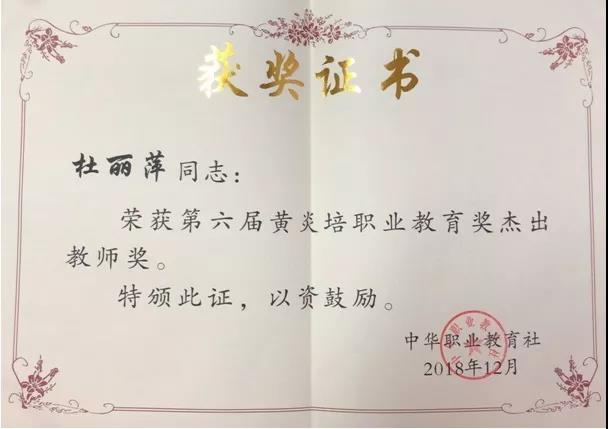 获奖证书
杜丽萍同志：
荣获第六届黄炎培职业教育奖杰出
教师奖。
特颁此证，以资鼓励。
中华职业教育社
2018年12月